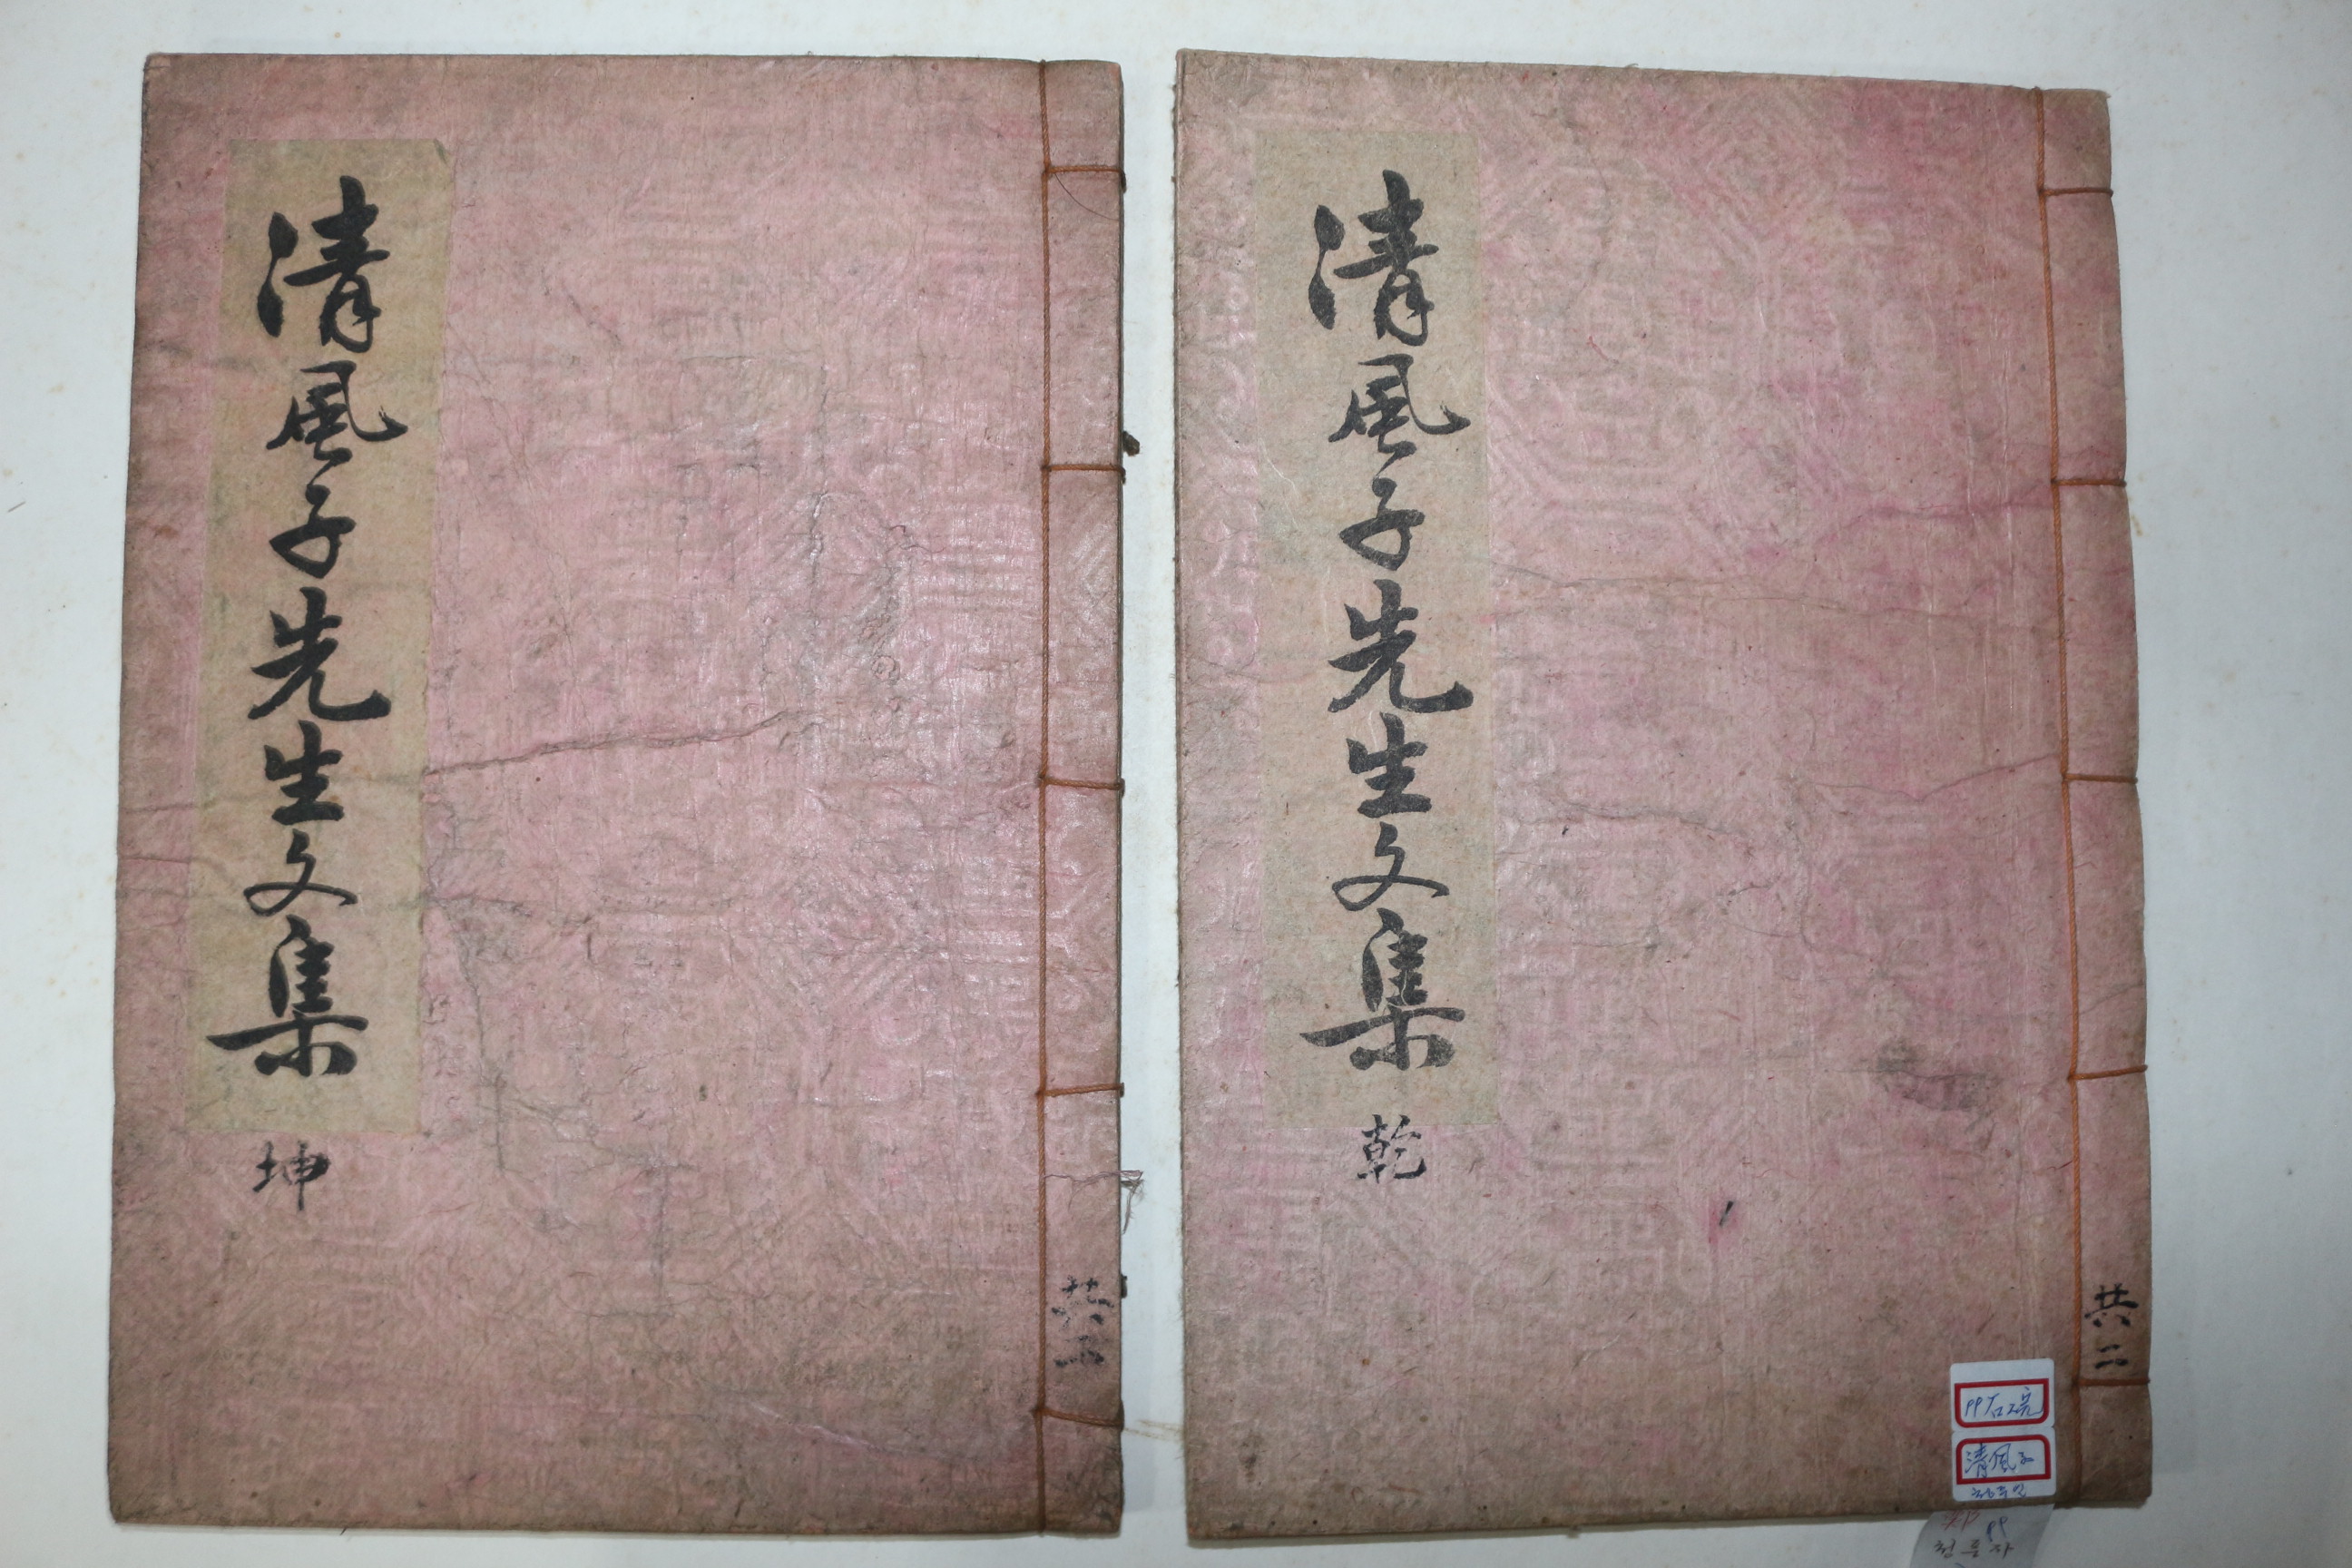 清風子先生文集
乾
共二
清風子
청풍자
清風子先生文集
坤
共二